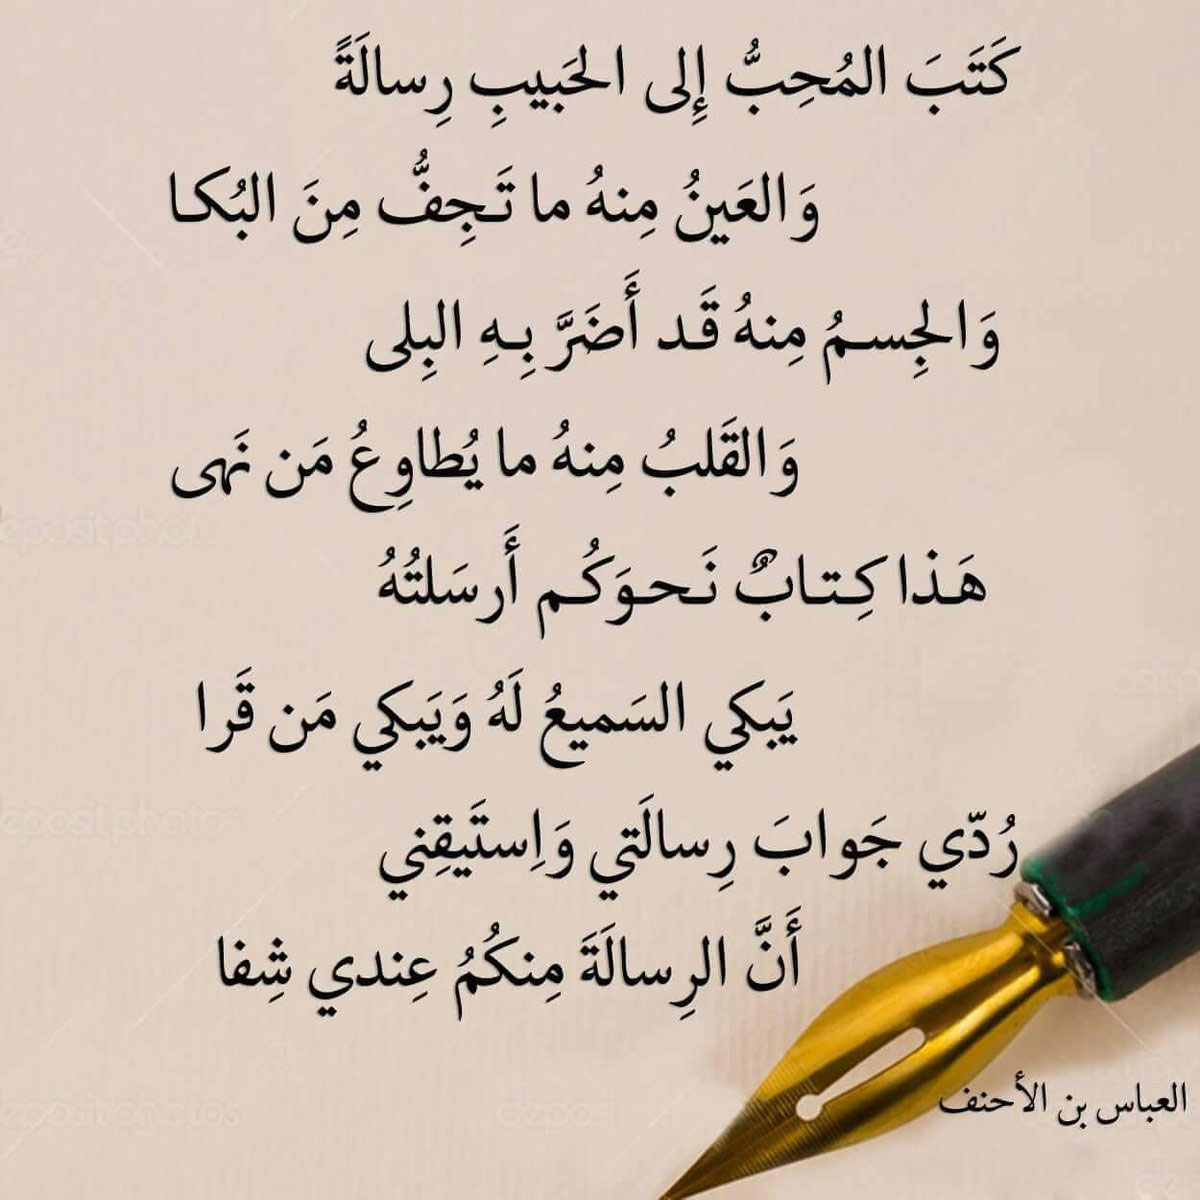 كَتَبَ المُحِبُّ إِلى الحَبيبِ رِسالَةً
وَالعَينُ مِنهُ ما تَجِفُّ مِنَ البُكا
وَالجِسمُ مِنهُ قَد أَضَرَّ بِهِ البِلى
وَالقَلبُ مِنهُ ما يُطاوِعُ مَن نَهى
هَذا كِتابٌ نَحوَكُم أَرسَلتُهُ
يَبكي السَميعُ لَهُ وَيَبكي مَن قَرا
رُدّي جَوابَ رِسالَتي وَاِستَيقِني
أَنَّ الرِسالَةَ مِنكُمُ عِندي شِفا
العباس بن الأحنف
depositphotos